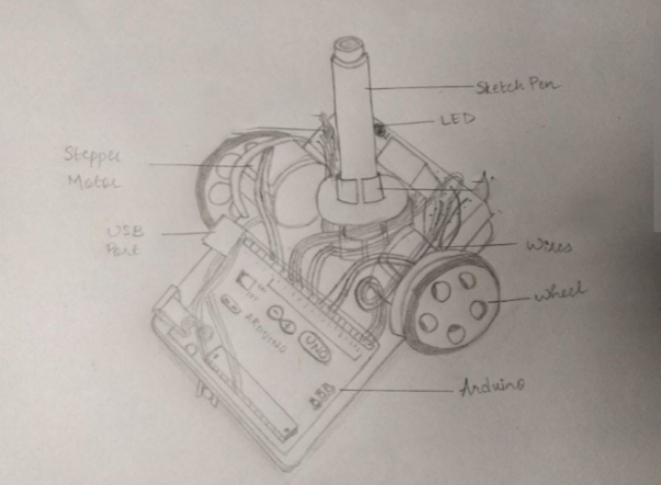 Sketch Pen
LED
Stepper
Motor
USB
Port
Wires
Wheel
ARDUINO
UNO
Arduino